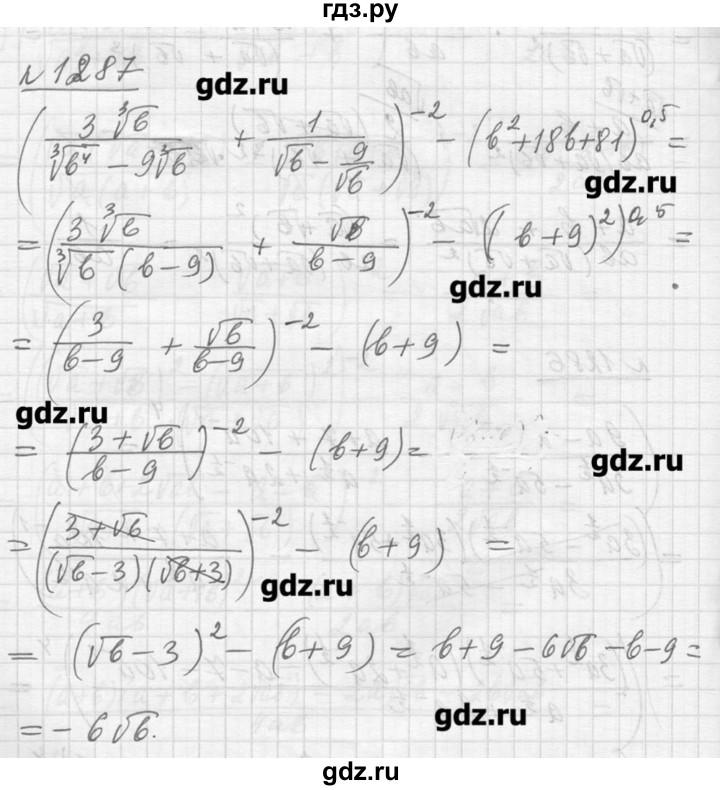 гдз.ру
№ 1287
gdz.ru
(3∛b / (∛b⁴ − 9∛b) + 1 / (√b − 9/√b))⁻² − (b² + 18b + 81)^0,5 =
gdz.ru
= (3∛b / (∛b (b − 9)) + √b / (b − 9))⁻² − ((b + 9)²)^0,5 =
gdz.ru
= (3 / (b − 9) + √b / (b − 9))⁻² − (b + 9) =
gdz.ru
= ((3 + √b) / (b − 9))⁻² − (b + 9) =
gdz.ru
= ((3 + √b) / ((√b − 3)(√b + 3)))⁻² − (b + 9) =
gdz.ru
= (√b − 3)² − (b + 9) = b + 9 − 6√b − b − 9 =
gdz.ru
= − 6√b.
gdz.ru